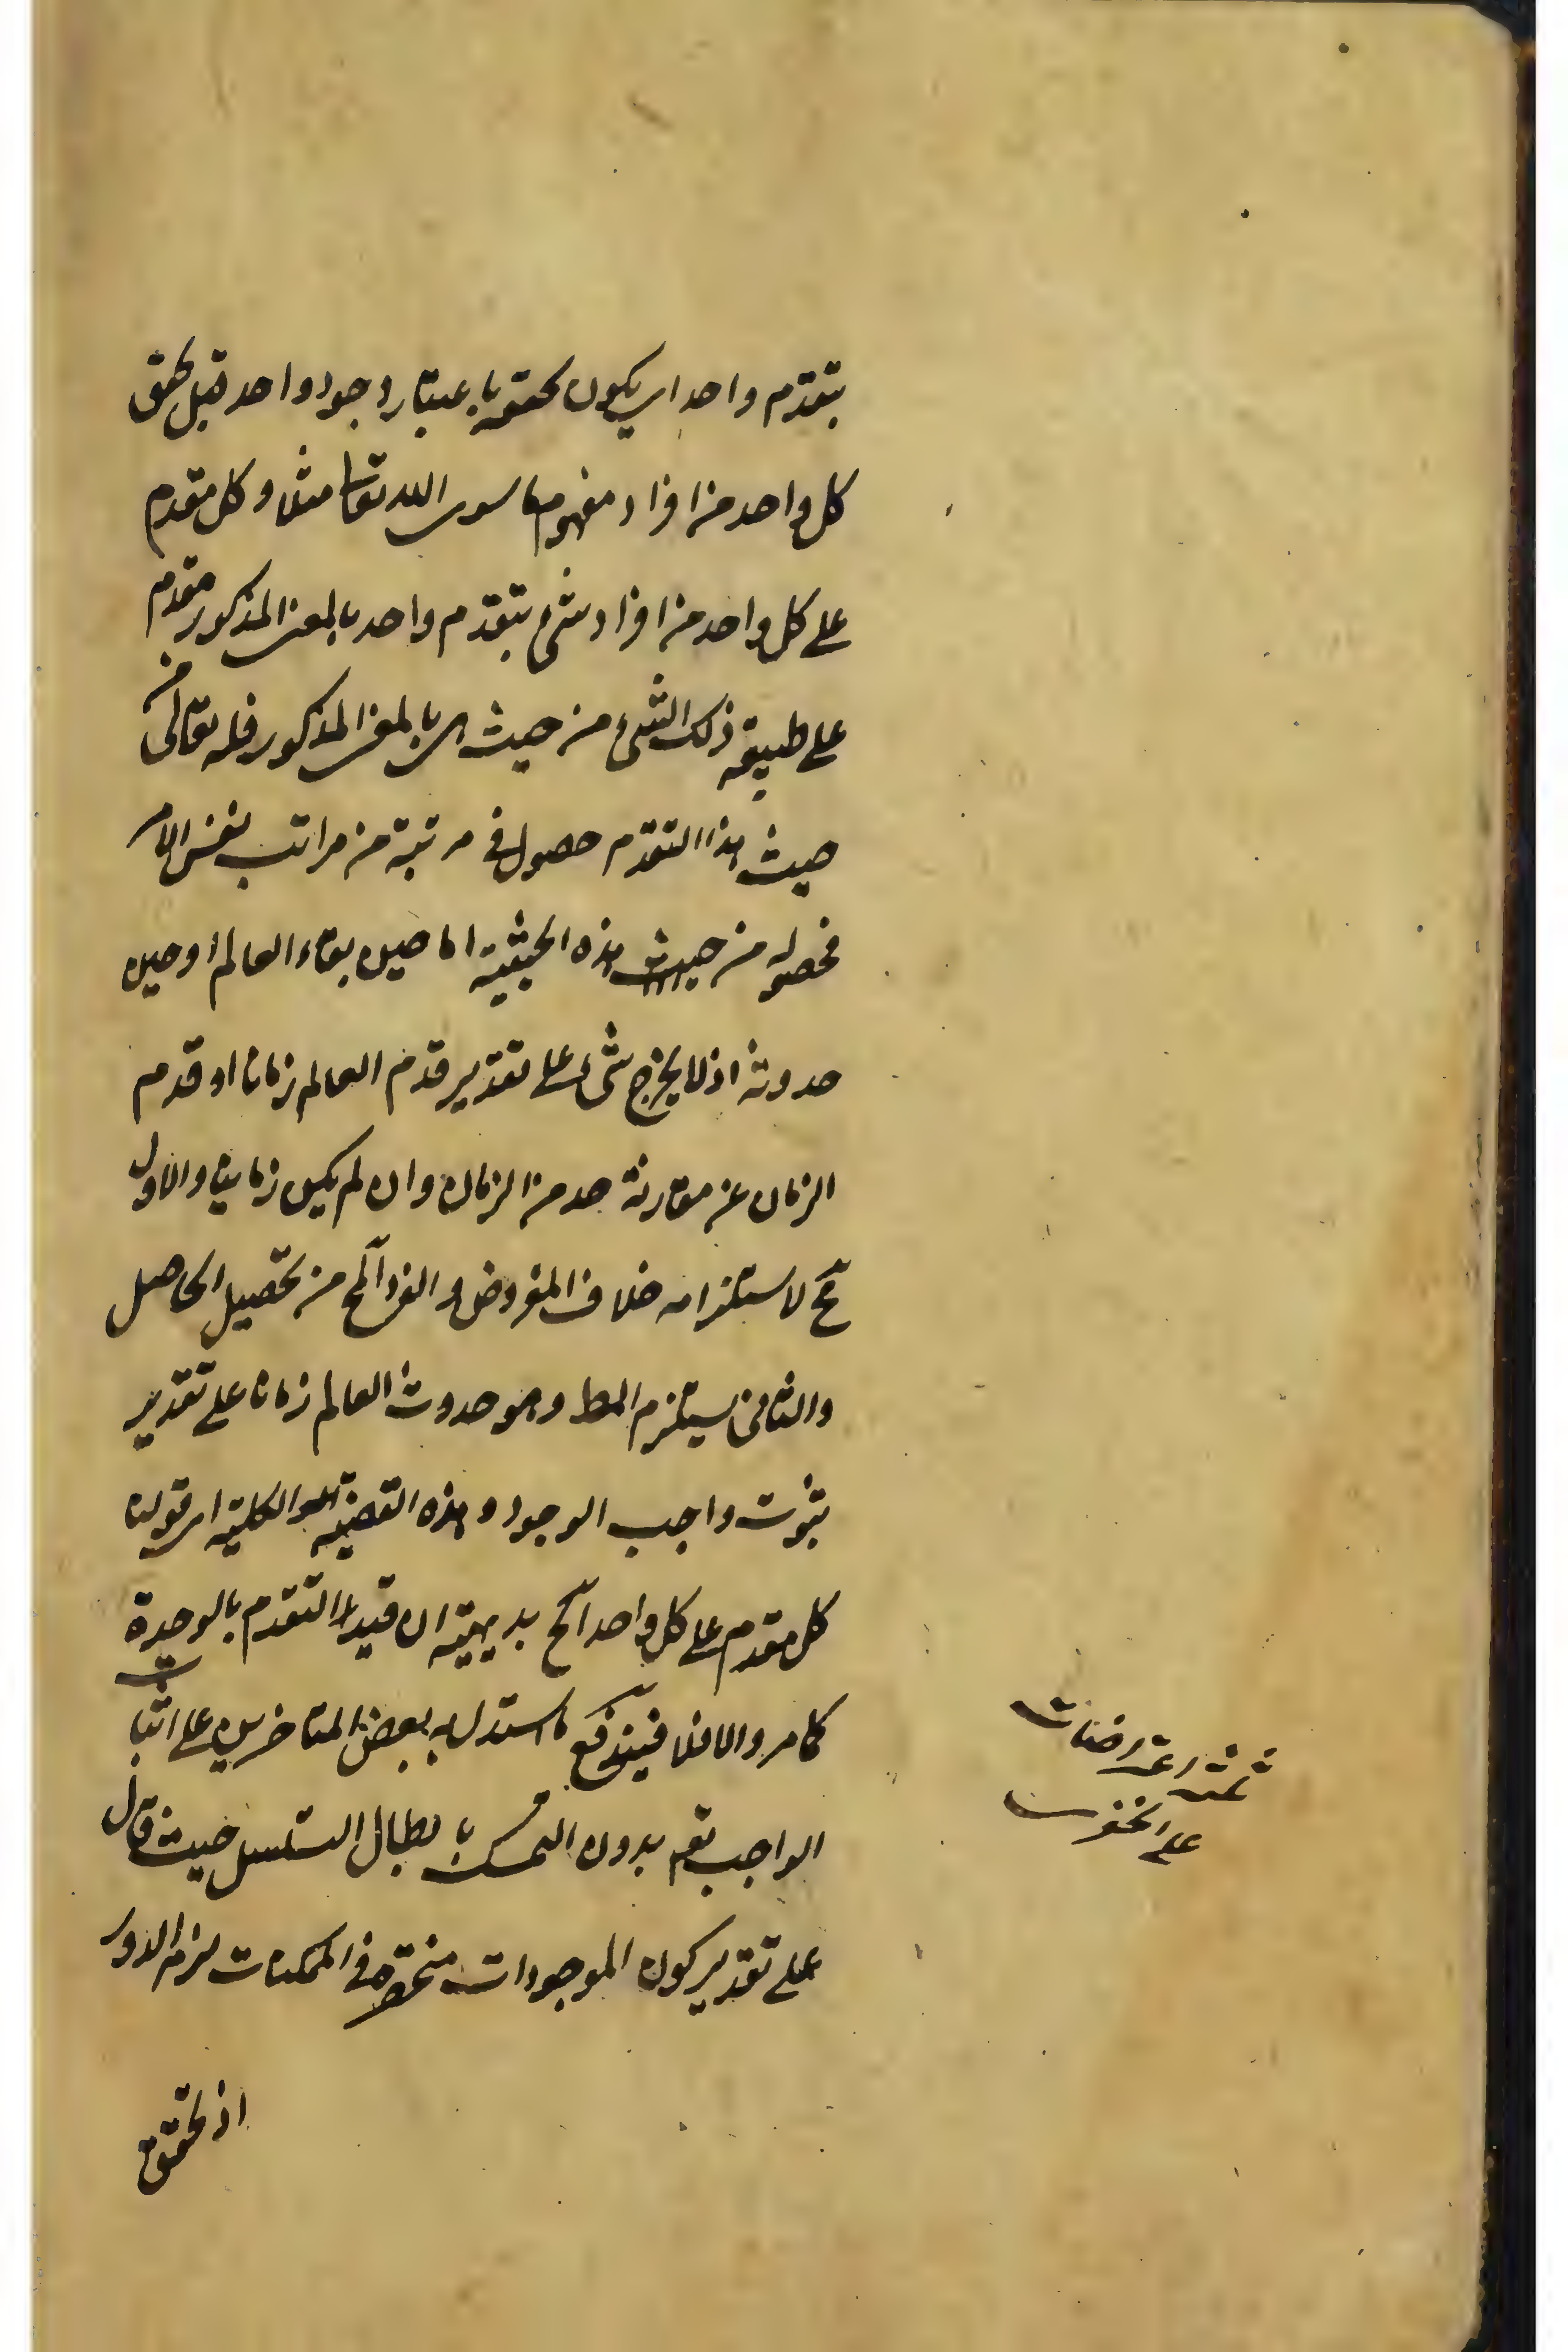 بتقدم واحد اى يكون تحققه باعتبار وجود واحد قبل تحقق
كل واحد من افراد مفهوم ما سوى الله تعالى مثلا وكل متقدم
على كل واحد من افراد شئ بتقدم واحد بالمعنى المذكور متقدم
على طبيعة ذلك الشئ من حيث هى بالمعنى المذكور فله تعالى من
حيث هذا التقدم حصول فى مرتبة من مراتب نفس الامر
فحصوله من حيث هذه الحيثية اما حين بقاء العالم او حين
حدوثه اذ لا يخرج شئ على تقدير قدم العالم زمانا او قدم
الزمان عن مقارنة حد من الزمان وان لم يكن زمانيا والاول
مح لاستلزامه خلاف المفروض والفرد المح من تحصيل الحاصل
والثانى يستلزم المط وهو حدوث العالم زمانا على تقدير
ثبوت واجب الوجود وهذه القضية الكلية اى قولنا
كل متقدم على كل واحد الخ بديهية ان قيد التقدم بالوحدة
كما مر والا فلا فيندفع ما استدل به بعض المتاخرين على اثبات
الواجب تعم بدون التمسك بابطال التسلسل حيث قال
على تقدير كون الموجودات منحصرة فى الممكنات لزم الدور
اذ تحقق
ثلثة اعتراضات
على الخفرى